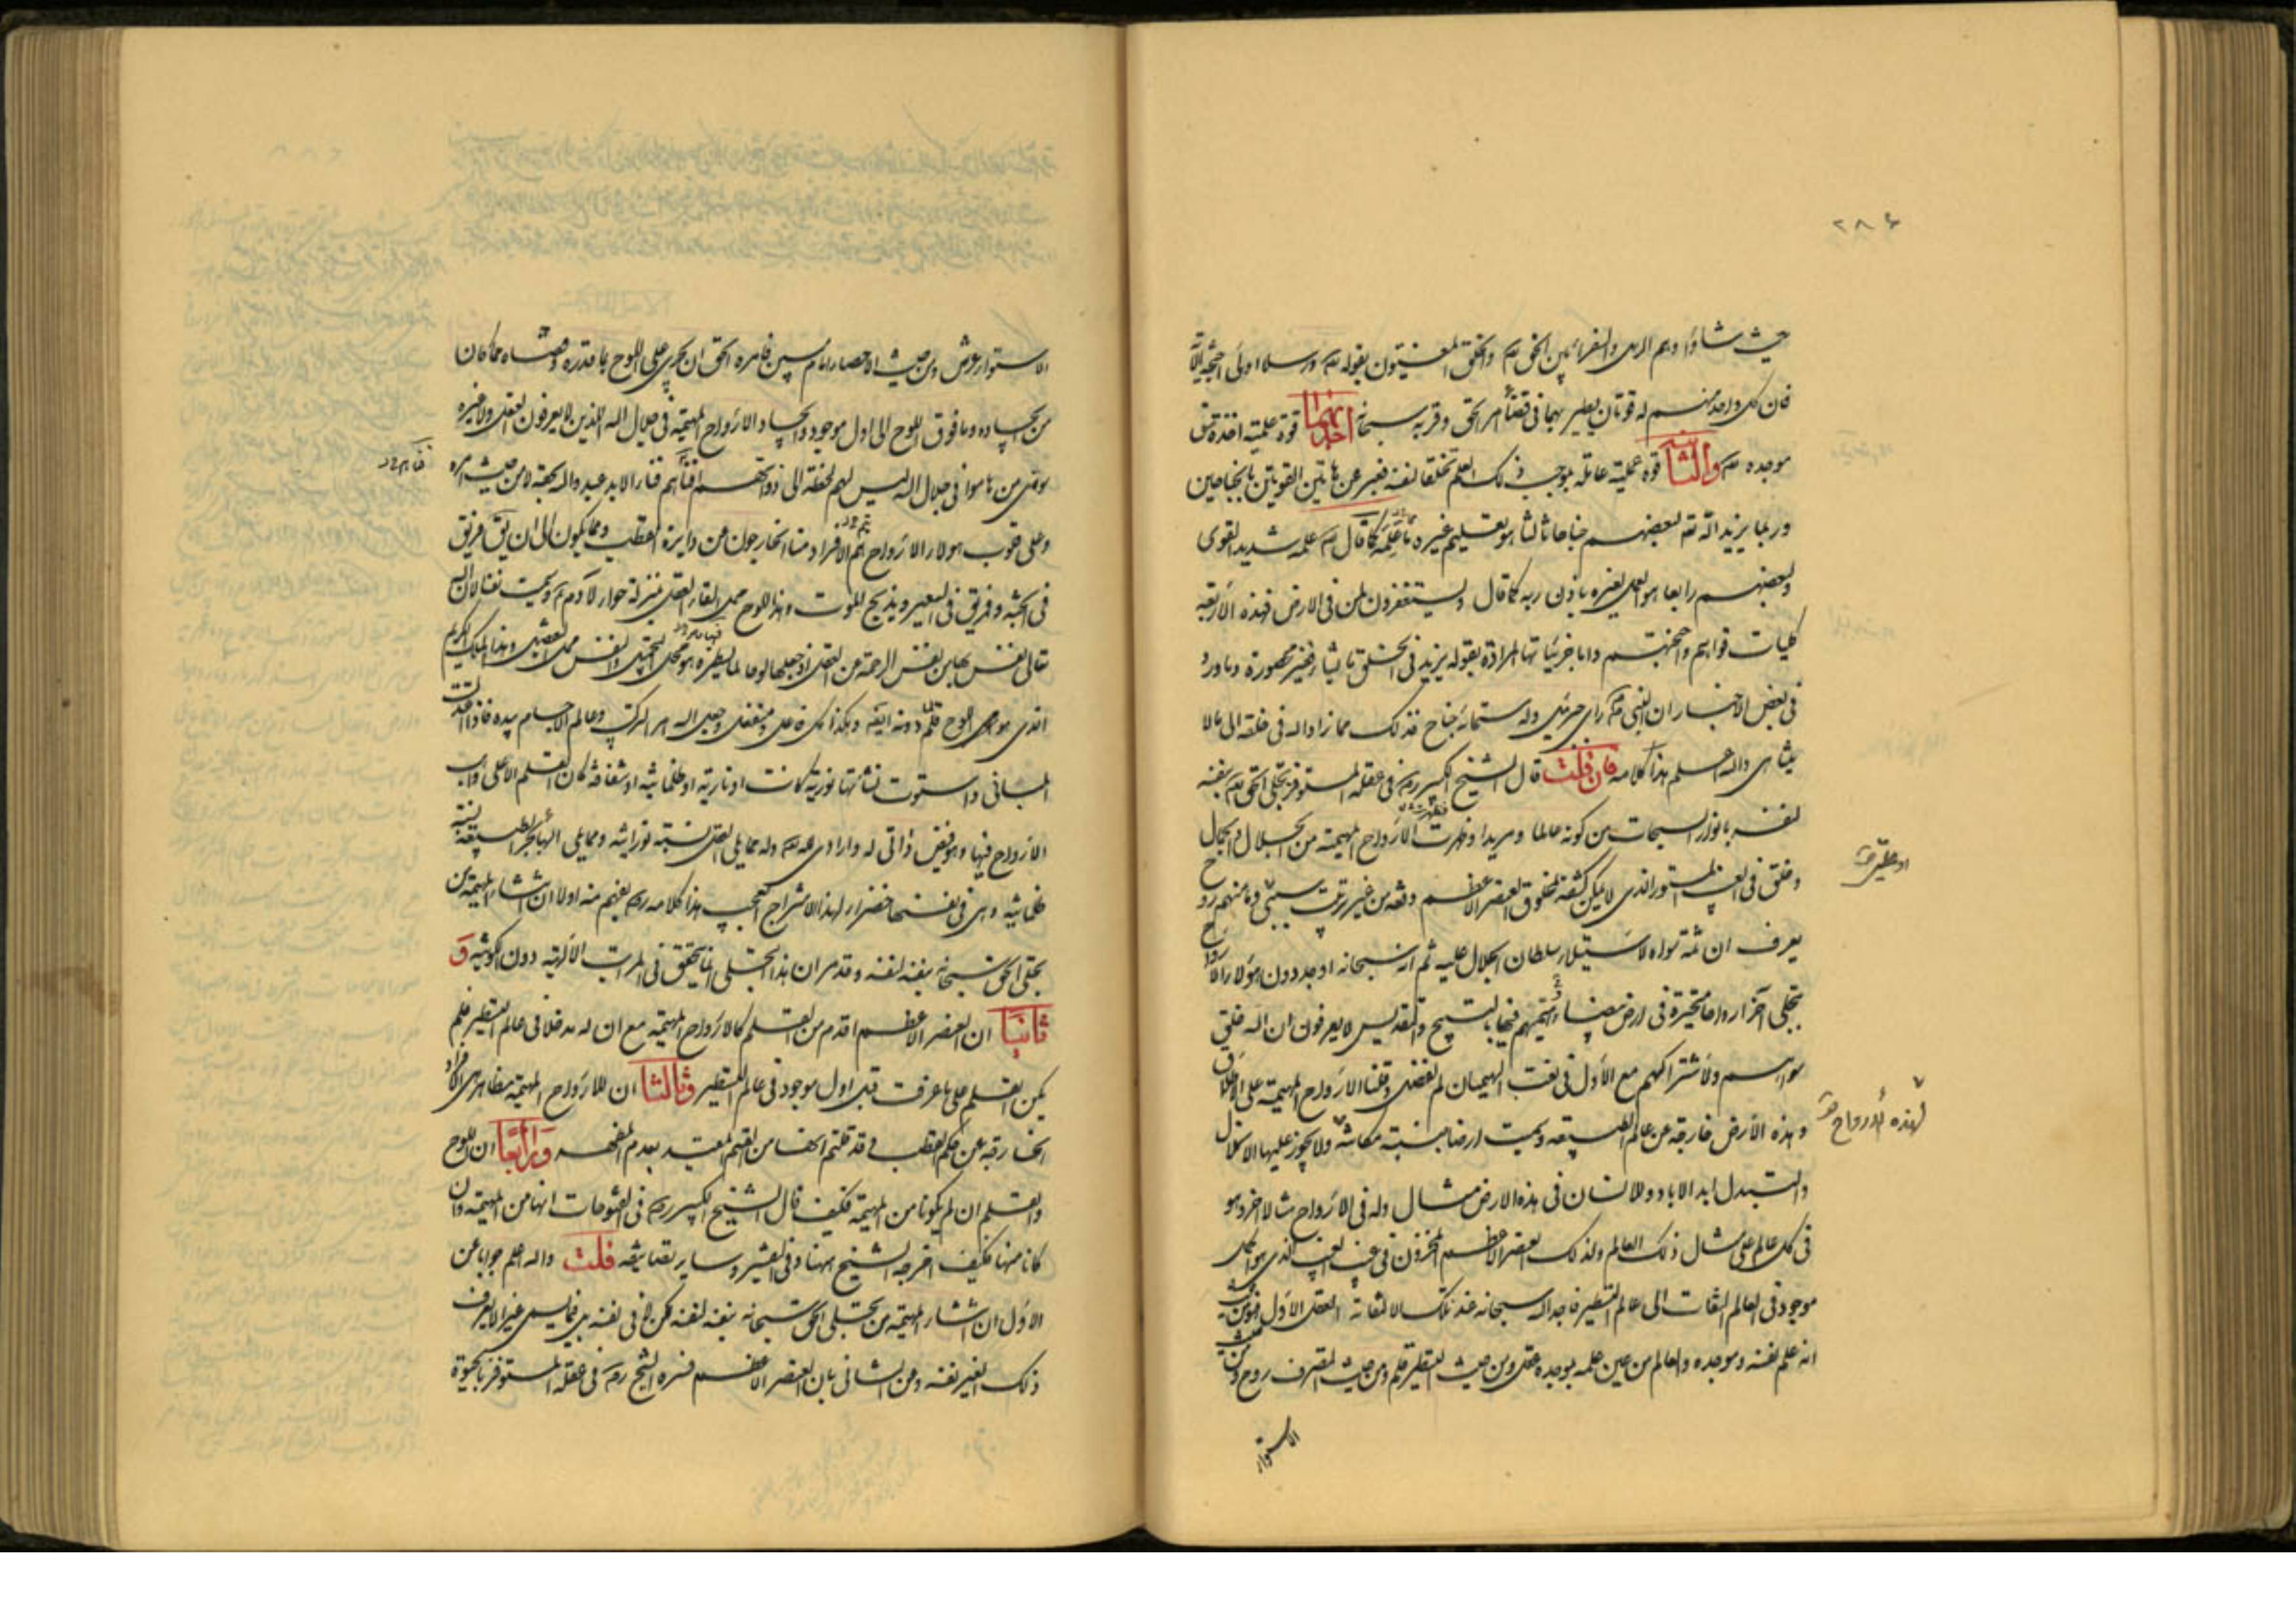 ٢٨٦
حيث شاؤا وهم الرسل والسفراء بين الحق تعالى والخلق المعنيون بقوله تعالى رسلا اولى اجنحة
فان كل واحد منهم له قوتان يطير بهما في قضاء امر الحق وقربه سبحانه احديهما قوة علمية اخذة من
موجده تعالى والثانية قوة عملية عاملة بموجب ذلك العلم لنفسه فعبر عن هاتين القوتين بالجناحين
وربما يزيد الله تعالى لبعضهم جناحا ثالثا هو تعليم غيره كما قال تعالى علمه شديد القوى
ولبعضهم رابعا هو لغيره باذن ربه كما قال ويستغفرون لمن في الارض فهذه الاربعة
كليات قواهم واجنحتهم واما جزئياتها المرادة بقوله يزيد في الخلق ما يشاء فغير محصورة وما ورد
في بعض الاخبار ان النبي راى جبرئيل وله ستمائة جناح فذلك مما زاد الله في خلقه الى ما لا
يتناهى والله اعلم هذا كلامه فان قلت قال الشيخ الكبير في عقلة المستوفز تجلى الحق بنفسه
لنفسه بانوار السبحات من كونه عالما ومريدا فظهرت الارواح المهيمة من الجلال والجمال
وخلق في الغيب المستور الذي لا يمكن كشفه لمخلوق العنصر الاعظم دفعة من غير ترتيب وما منهم روح
يعرف ان ثمة سواه لاستيلاء سلطان الجلال عليه ثم انه سبحانه اوجد دون هؤلاء الارواح
بتجلى آخر ارواحا متحيزة في ارض بيضاء فيها بالتسبيح والتقديس لا يعرفون ان الله خلق
سواهم ولاشتراكهم مع الاول في نعت الهيمان لم نفصل وقلنا الارواح المهيمة على الاطلاق
لهذه الارواح
وهذه الارض خارجة عن عالم الطبيعة وسميت ارضا نسبة مكانية ولا يجوز عليها الانحلال
والتبدل ابد الاباد وللانسان في هذه الارض مثال وله في الارواح مثال اخر وهو
في كل عالم على مثال ذلك العالم ولذلك العنصر الاعظم المخزون في غيب الغيب الذي هو اكمل
موجود في العالم التفات الى عالم التسطير فاوجد الله سبحانه عند تلك الالتفاتة العقل الاول فهو من حيث
انه علم نفسه وموجده والعالم من عين علمه بموجده عقل ومن حيث التسطير قلم ومن حيث التصرف روح ومن حيث
الاستواء
الاستواء عرش ومن حيث الاحصاء امام مبين فامره الحق ان يجري على اللوح بما قدره وقضاه مما كان
من ايجاده وما فوق اللوح الى اول موجود وايجاد الارواح المهيمة في جلال الله الذين لا يعرفون العقل ولا غيره
سوى من هاموا في جلال الله ليس لهم لحظة الى ذواتهم افناهم فناء الابد عبدوا الله بحقه لا من حيث امره
وعلى قلوب هؤلاء الارواح هم الافراد منا الخارجون عن دائرة القطب ومما يكون الى ان يقال فريق
في الجنة وفريق في السعير ويذبح الموت وهذا اللوح محل القاء العقل بمنزلة حواء لآدم وسميت نفسا لان الله
تعالى نفس بها من نفس الرحمة عن العقل اذ جعلها لوحا لما يسطره هو محل التجميل والنفس محل التفصيل وهذا الملك الكريم
الذي هو اللوح قلم لما دونه ايضا وهكذا كل فاعل ومنفعل وجعل الله امر التركيب وعالم الاجسام بيده فاذا اقتضت
المباني واستوت نشأتها نورية كانت او نارية او ظلمانية او شفافة كان القلم الاعلى واهب
الارواح فيها وهو فيض ذاتي له وارادي لله تعالى وله مما يلى العقل نسبة نورانية ومما يلى الهباء بحر الطبيعة نسبة
ظلمانية وهي في نفسها خضراء لهذا الامتزاج العجيب هذا كلامه يفهم منه اولا ان انشاء المهيمة من
تجلى الحق سبحانه بنفسه لنفسه وقد مر ان هذا التجلى انما يتحقق في المراتب الالهية دون الكونية و
ثانيا ان العنصر الاعظم اقدم من القلم كالارواح المهيمة مع ان له مدخلا في عالم التسطير فلم
يكن القلم على ما عرفت قبل اول موجود في عالم التسطير وثالثا ان للارواح المهيمة مظاهر هي الافراد
الخارجة عن حكم القطب وقد قلتم من القيم المعتبر بعدم المظهر ورابعا ان اللوح
والقلم ان لم يكونا من المهيمة فكيف قال الشيخ الكبير في الفتوحات انها من المهيمة وان
كانا منها فكيف اخرجه الشيخ ههنا وفي التفسير وساير تصانيفه قلت والله اعلم جوابا عن
الاول ان انشاء المهيمة من تجلى الحق سبحانه بنفسه لنفسه لكن لا في نفسه بل فيما يسمى غيرا لا يعرف
ذلك الغير نفسه وعن الثاني بان العنصر الاعظم فسره الشيخ في عقلة المستوفز بالحيوة